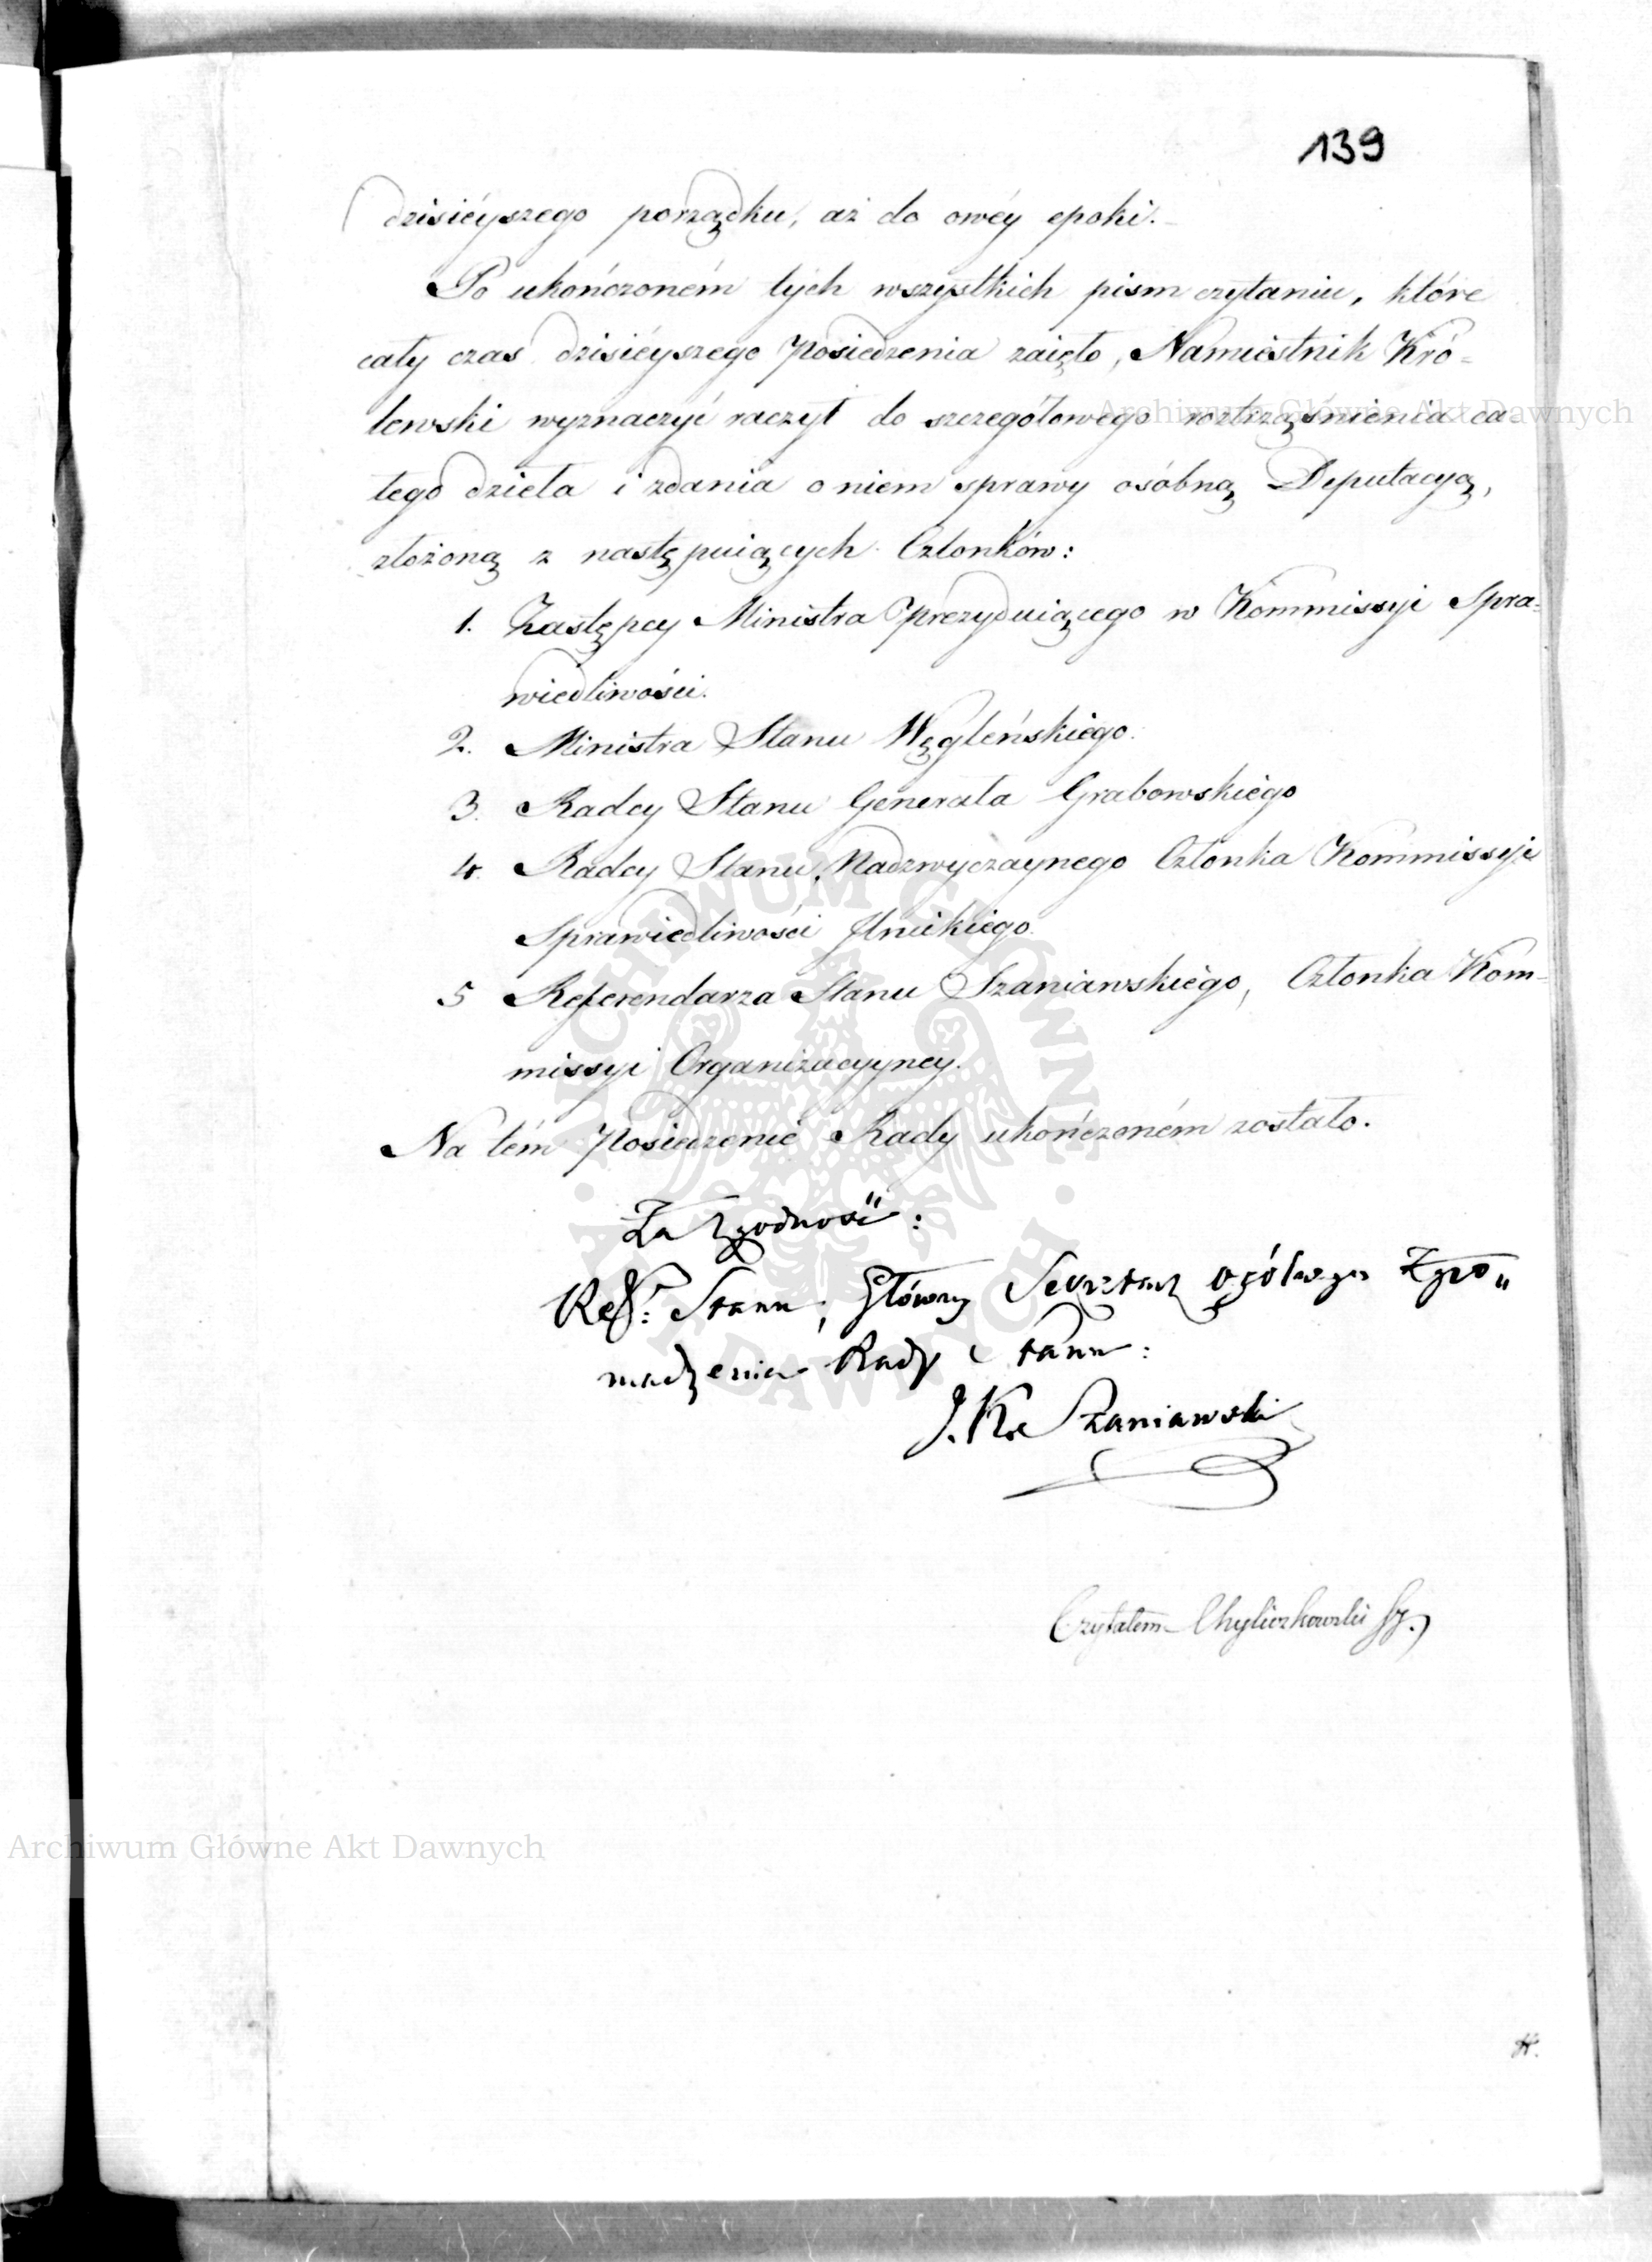 139
dzisiéyszego porządku, aż do owéy epoki.
Po ukończoném tych wszystkich pism czytaniu, które
cały czas dzisiéyszego Posiedzenia zaięło, Namiestnik Kró=
lewski wyznaczyć raczył do szczegółowego roztrząśnienia ca
łego dzieła i zdania o niem sprawy osóbną Deputacyą,
złożoną z następuiących Członków:
1. Zastępcy Ministra Prezyduiącego w Kommissyi Spra=
wiedliwości.
2. Ministra Stanu Węgleńskiego.
3. Radcy Stanu Generała Grabowskiego
4. Radcy Stanu Nadzwyczaynego Członka Kommissyi
Sprawiedliwości
5 Referendarza Stanu Szaniawskiego, Członka Kom=
missyi Organizacyyney.
Na tém Posiedzenie Rady ukończoném zostało.
Za Zgodność:
Ref: Stanu, Główny Sekretarz ogólnego Zgro„
madzenia Rady Stanu:
J. K. Szaniawski
Czytałem Chyliczkowski
Archiwum Główne Akt Dawnych
ARCHIWUM GŁÓWNE AKT DAWNYCH
Archiwum Główne Akt Dawnych